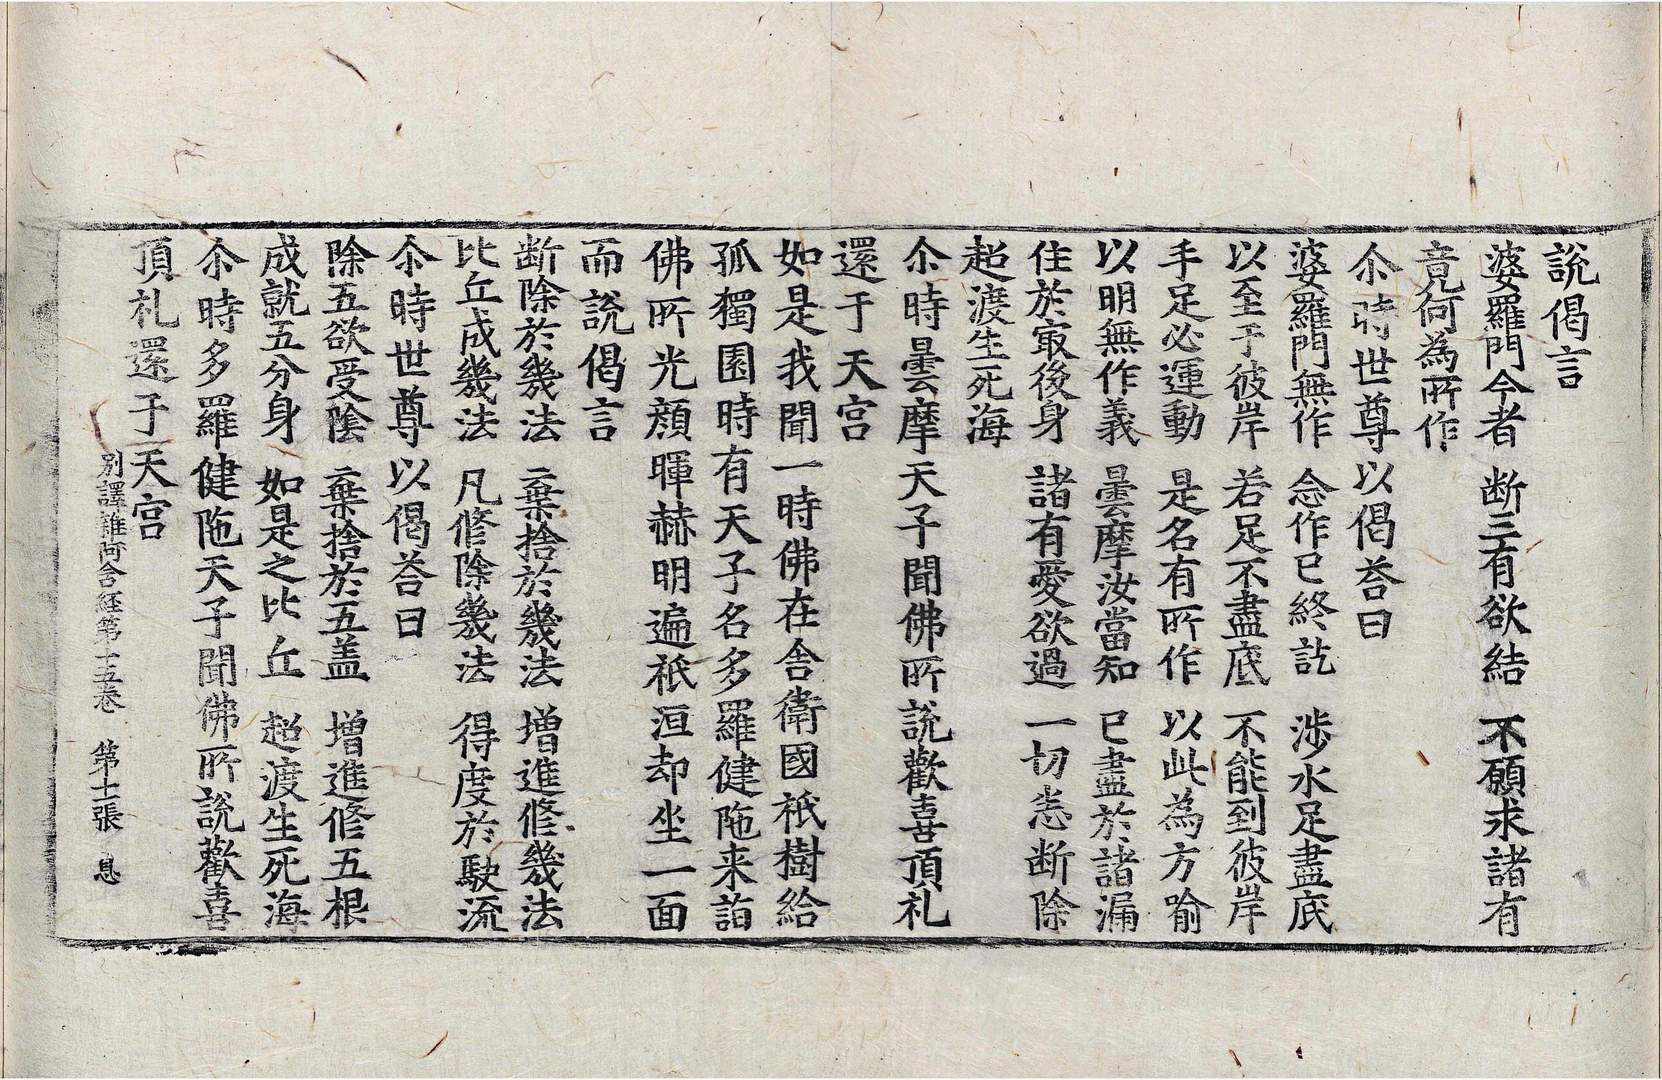 說偈言
婆羅門今者 断三有欲結 不願求諸有
竟何為所作
尒時世尊以偈荅曰
婆羅門無作 念作已終訖 渉水足盡底
以至于彼岸 若足不盡底 不能到彼岸
手足必運動 是名有所作 以此為方喻
以明無作義 曇摩汝當知 已盡於諸漏
住於㝡後身 諸有愛欲過 一切悉断除
超渡生死海
尒時曇摩天子聞佛所說歡喜頂礼
還于天宮
如是我聞一時佛在舍衛國祇樹給
孤獨園時有天子名多羅健陁来詣
佛所光顔暉赫明遍祇洹却坐一面
而說偈言
断除於幾法 棄捨於幾法 增進修幾法
比丘成幾法 凡修除幾法 得度於駛流
尒時世尊以偈荅曰
除五欲受陰 棄捨於五盖 增進修五根
成就五分身 如是之比丘 超渡生死海
尒時多羅健陁天子聞佛所說歡喜
頂礼還于天宮
別譯雜阿含經第十五卷 第十二張 息